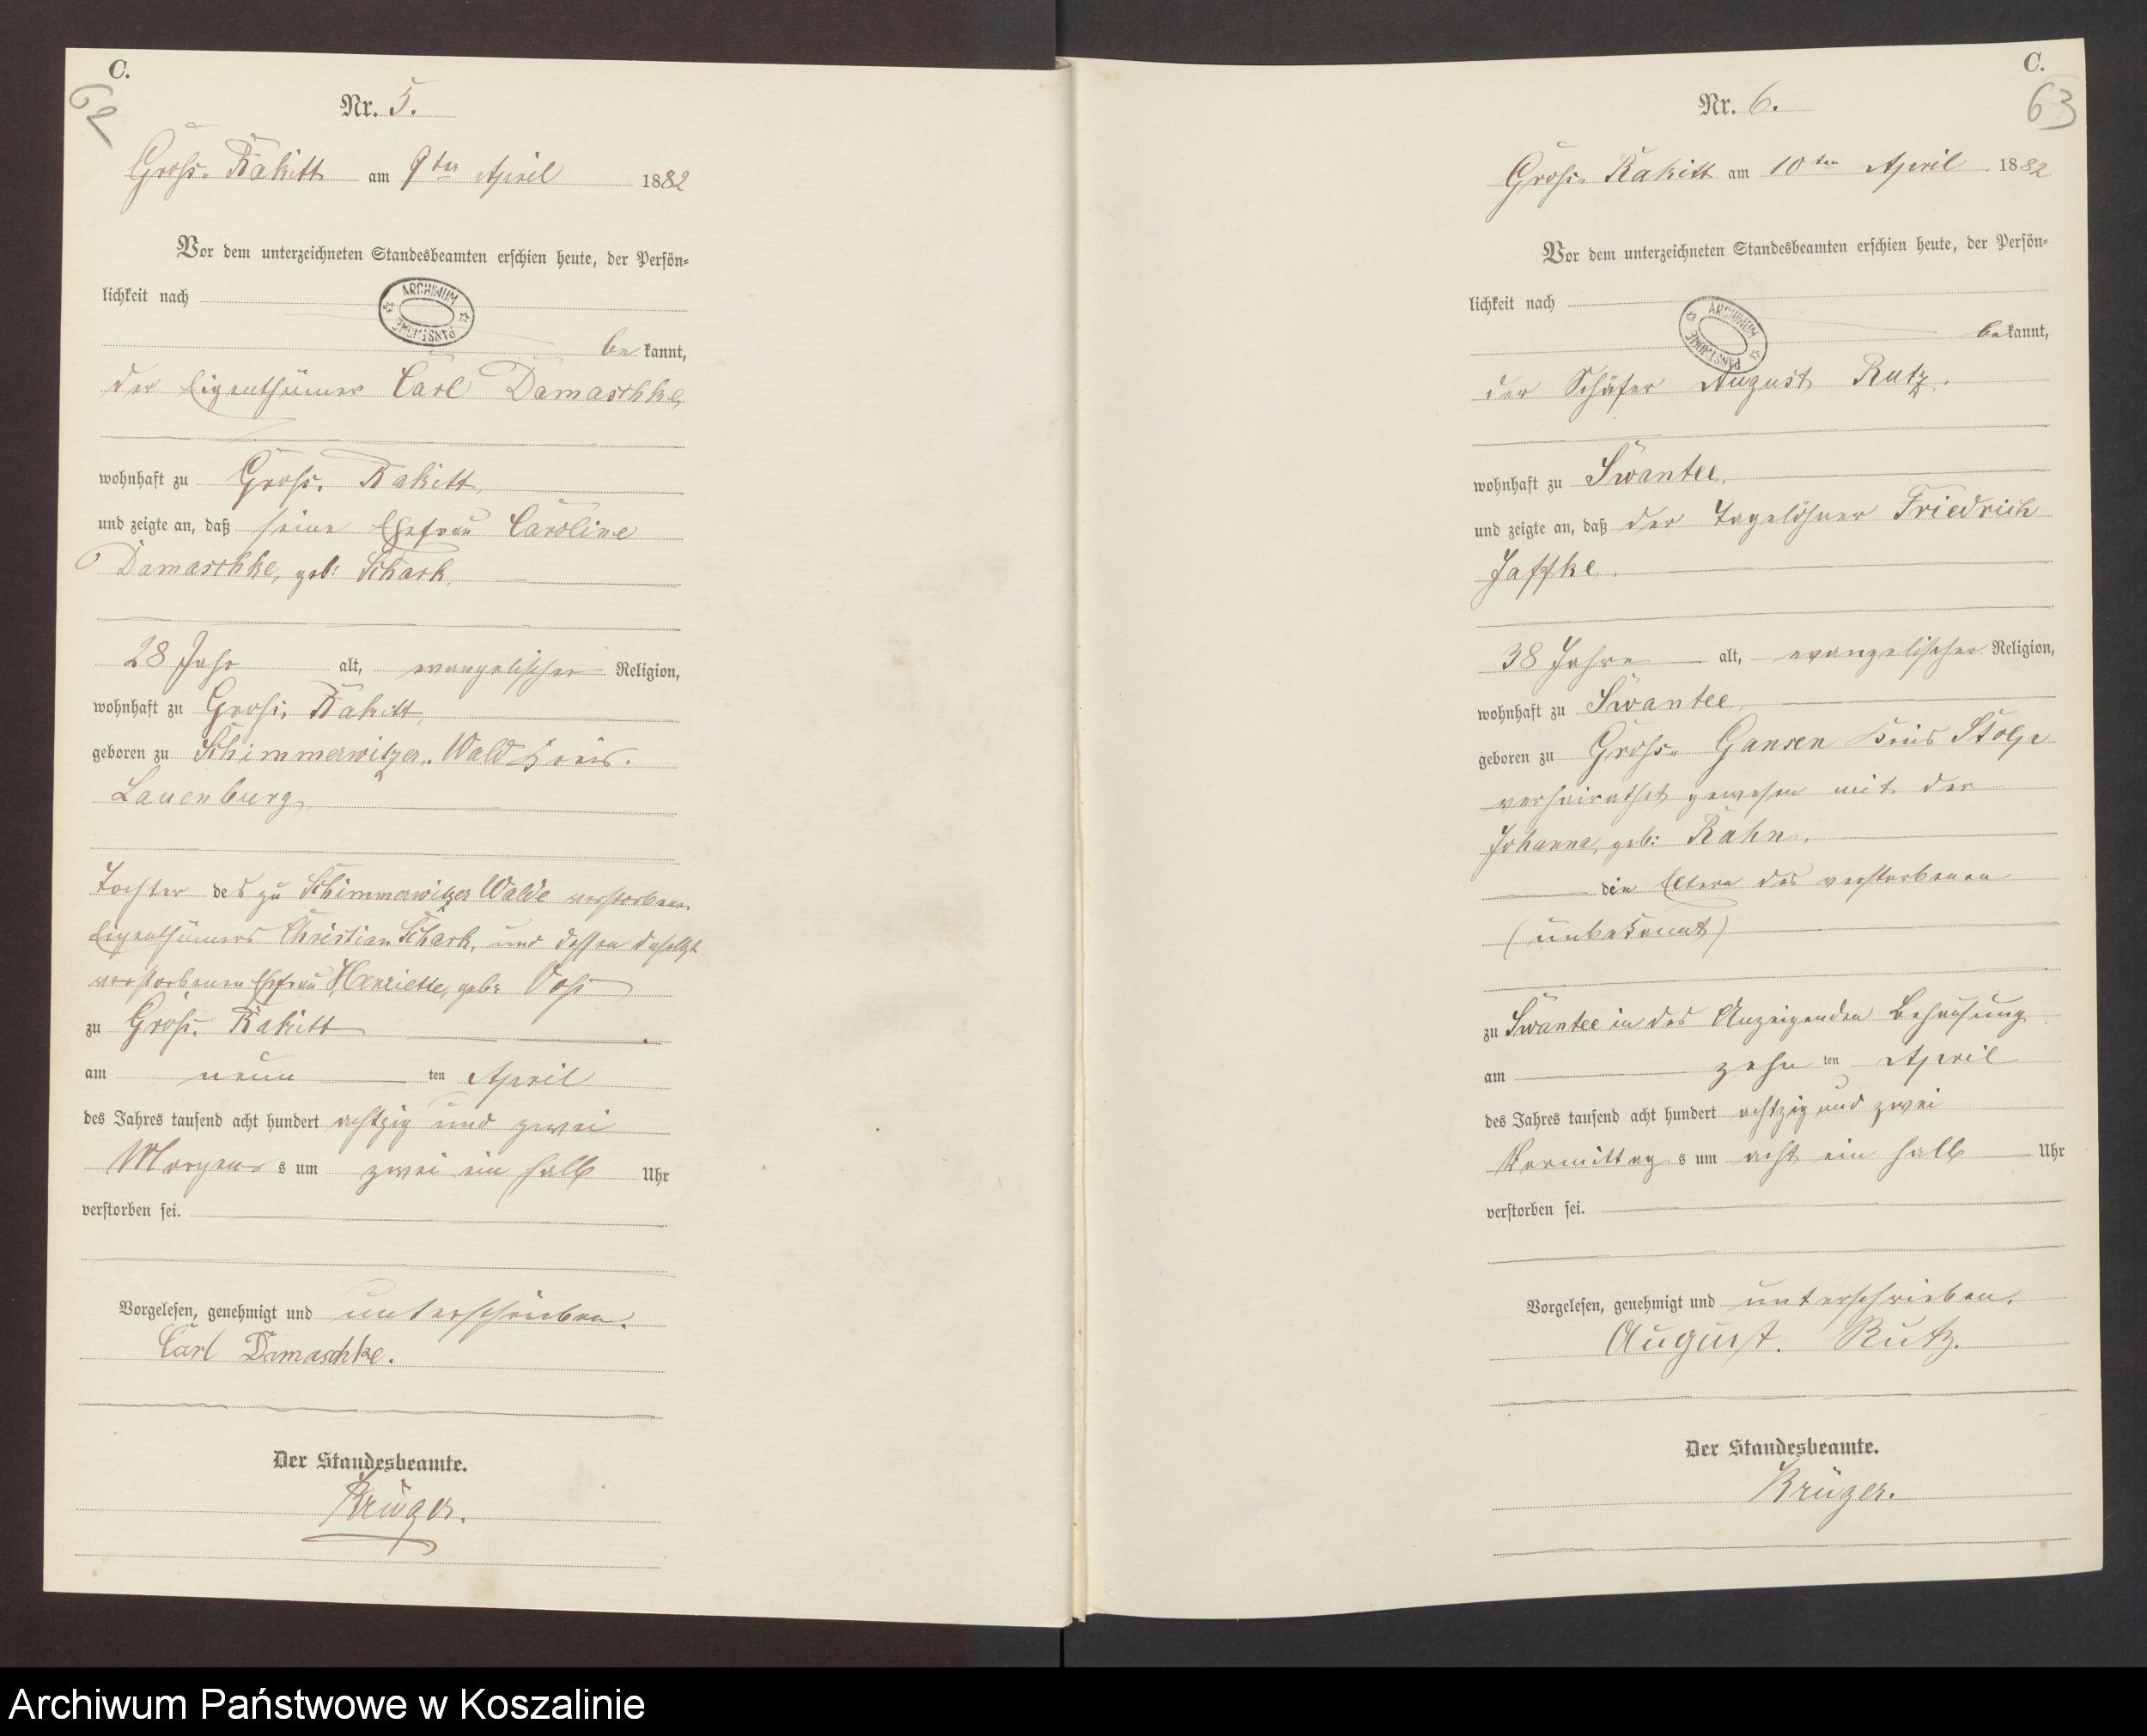 C.
62
Nr. 5.
Gross-Rakitt am 9ten April 1882
Vor dem unterzeichneten Standesbeamten erschien heute, der Persön-
lichkeit nach
ARCHIWUM PAŃSTWOWE
be kannt,
der Eigenthümer Carl Damaschke,
wohnhaft zu Gross-Rakitt,
und zeigte an, daß seine Ehefrau Caroline
Damaschke, geb: Schark,
28 Jahr alt, evangelischer Religion,
wohnhaft zu Gross-Rakitt,
geboren zu Schimmerwitzer-Wald Kreis
Lauenburg,
Tochter des zu Schimmerwitzer Walde verstorbenen
Eigenthümers Christian Schark, und dessen daselbst
verstorbenen Ehefrau Henriette, geb: Voss
zu Gross-Rakitt
am neun ten April
des Jahres tausend acht hundert achtzig und zwei
Morgens um zwei ein halb Uhr
verstorben sei.
Vorgelesen, genehmigt und unterschrieben.
Carl Damaschke.
Der Standesbeamte.
Krüger.
C.
63
Nr. 6.
Gross-Rakitt am 10ten April 1882
Vor dem unterzeichneten Standesbeamten erschien heute, der Persön-
lichkeit nach
ARCHIWUM PAŃSTWOWE
bekannt,
der Schäfer August Rutz.
wohnhaft zu Swantee,
und zeigte an, daß der Tagelöhner Friedrich
Jaffke.
38 Jahre alt, evangelischer Religion,
wohnhaft zu Swantee,
geboren zu Gross-Gansen Kreis Stolp
verheirathet gewesen mit der
Johanna, geb: Rahn.
die Eltern des verstorbenen
(unbekannt)
zu Swantee in des Anzeigenden Behausung
am zehn ten April
des Jahres tausend acht hundert achtzig und zwei
Vormittags um acht ein halb Uhr
verstorben sei.
Vorgelesen, genehmigt und unterschrieben.
August. Rutz.
Der Standesbeamte.
Krüger.
Archiwum Państwowe w Koszalinie